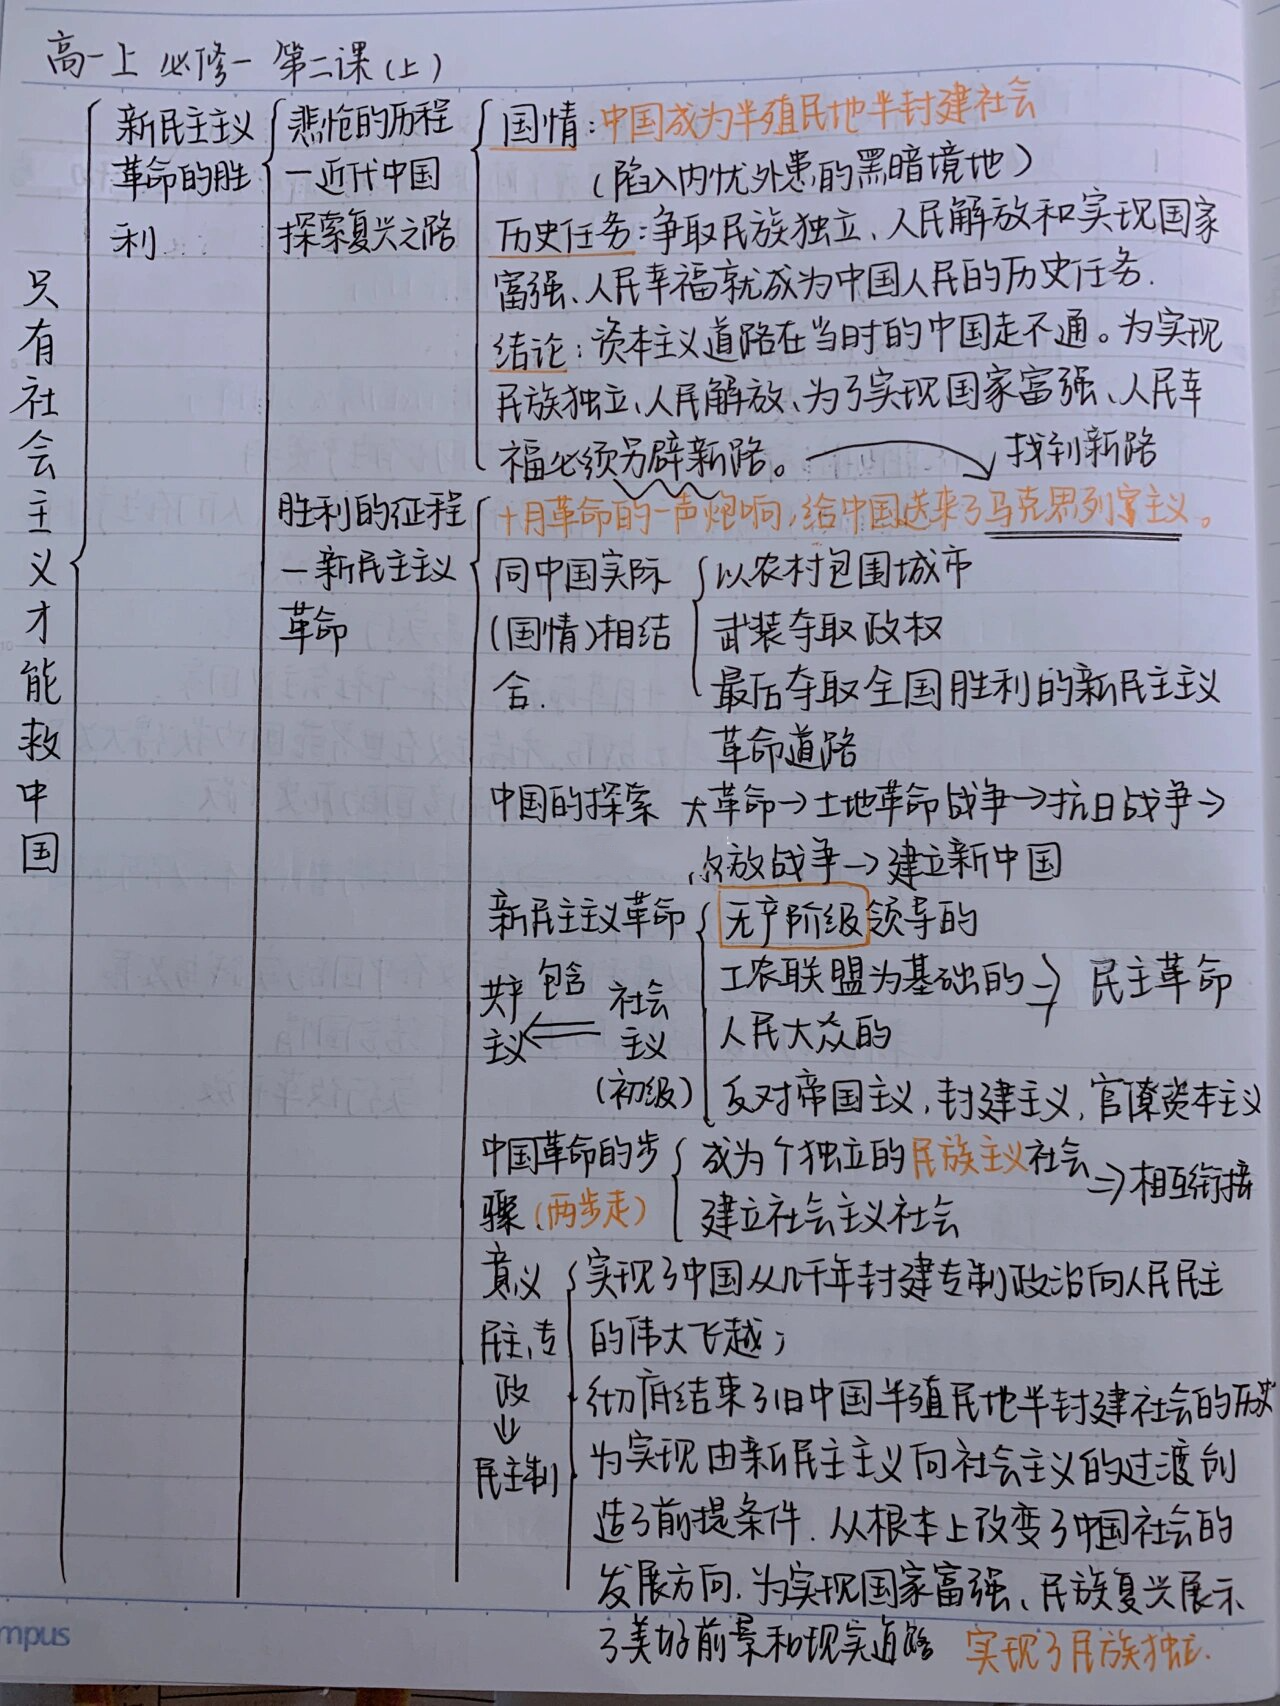 高一上 必修一 第二课(上)
只有社会主义才能救中国
新民主主义
革命的胜
利
悲怆的历程
—近代中国
探索复兴之路
国情:中国成为半殖民地半封建社会
(陷入内忧外患的黑暗境地)
历史任务:争取民族独立、人民解放和实现国家
富强、人民幸福就成为中国人民的历史任务.
结论:资本主义道路在当时的中国走不通。为实现
民族独立、人民解放、为了实现国家富强、人民幸
福必须另辟新路。 找到新路
胜利的征程
—新民主主义
革命
十月革命的一声炮响,给中国送来了马克思列宁主义。
同中国实际
(国情)相结
合.
以农村包围城市
武装夺取政权
最后夺取全国胜利的新民主主义
革命道路
中国的探索 大革命→土地革命战争→抗日战争→
解放战争→建立新中国
新民主主义革命
共产主义 包含 社会主义
(初级)
无产阶级领导的
工农联盟为基础的 ⇒ 民主革命
人民大众的
反对帝国主义,封建主义,官僚资本主义
中国革命的步
骤(两步走)
成为个独立的民族主义社会
建立社会主义社会
⇒相互衔接
意义
民主,专
政
⇓
民主制
实现了中国从几千年封建专制政治向人民民主
的伟大飞越;
彻底结束了旧中国半殖民地半封建社会的历史
为实现由新民主主义向社会主义的过渡创
造了前提条件.从根本上改变了中国社会的
发展方向.为实现国家富强、民族复兴展示
了美好前景和现实道路 实现了民族独立.
mpus